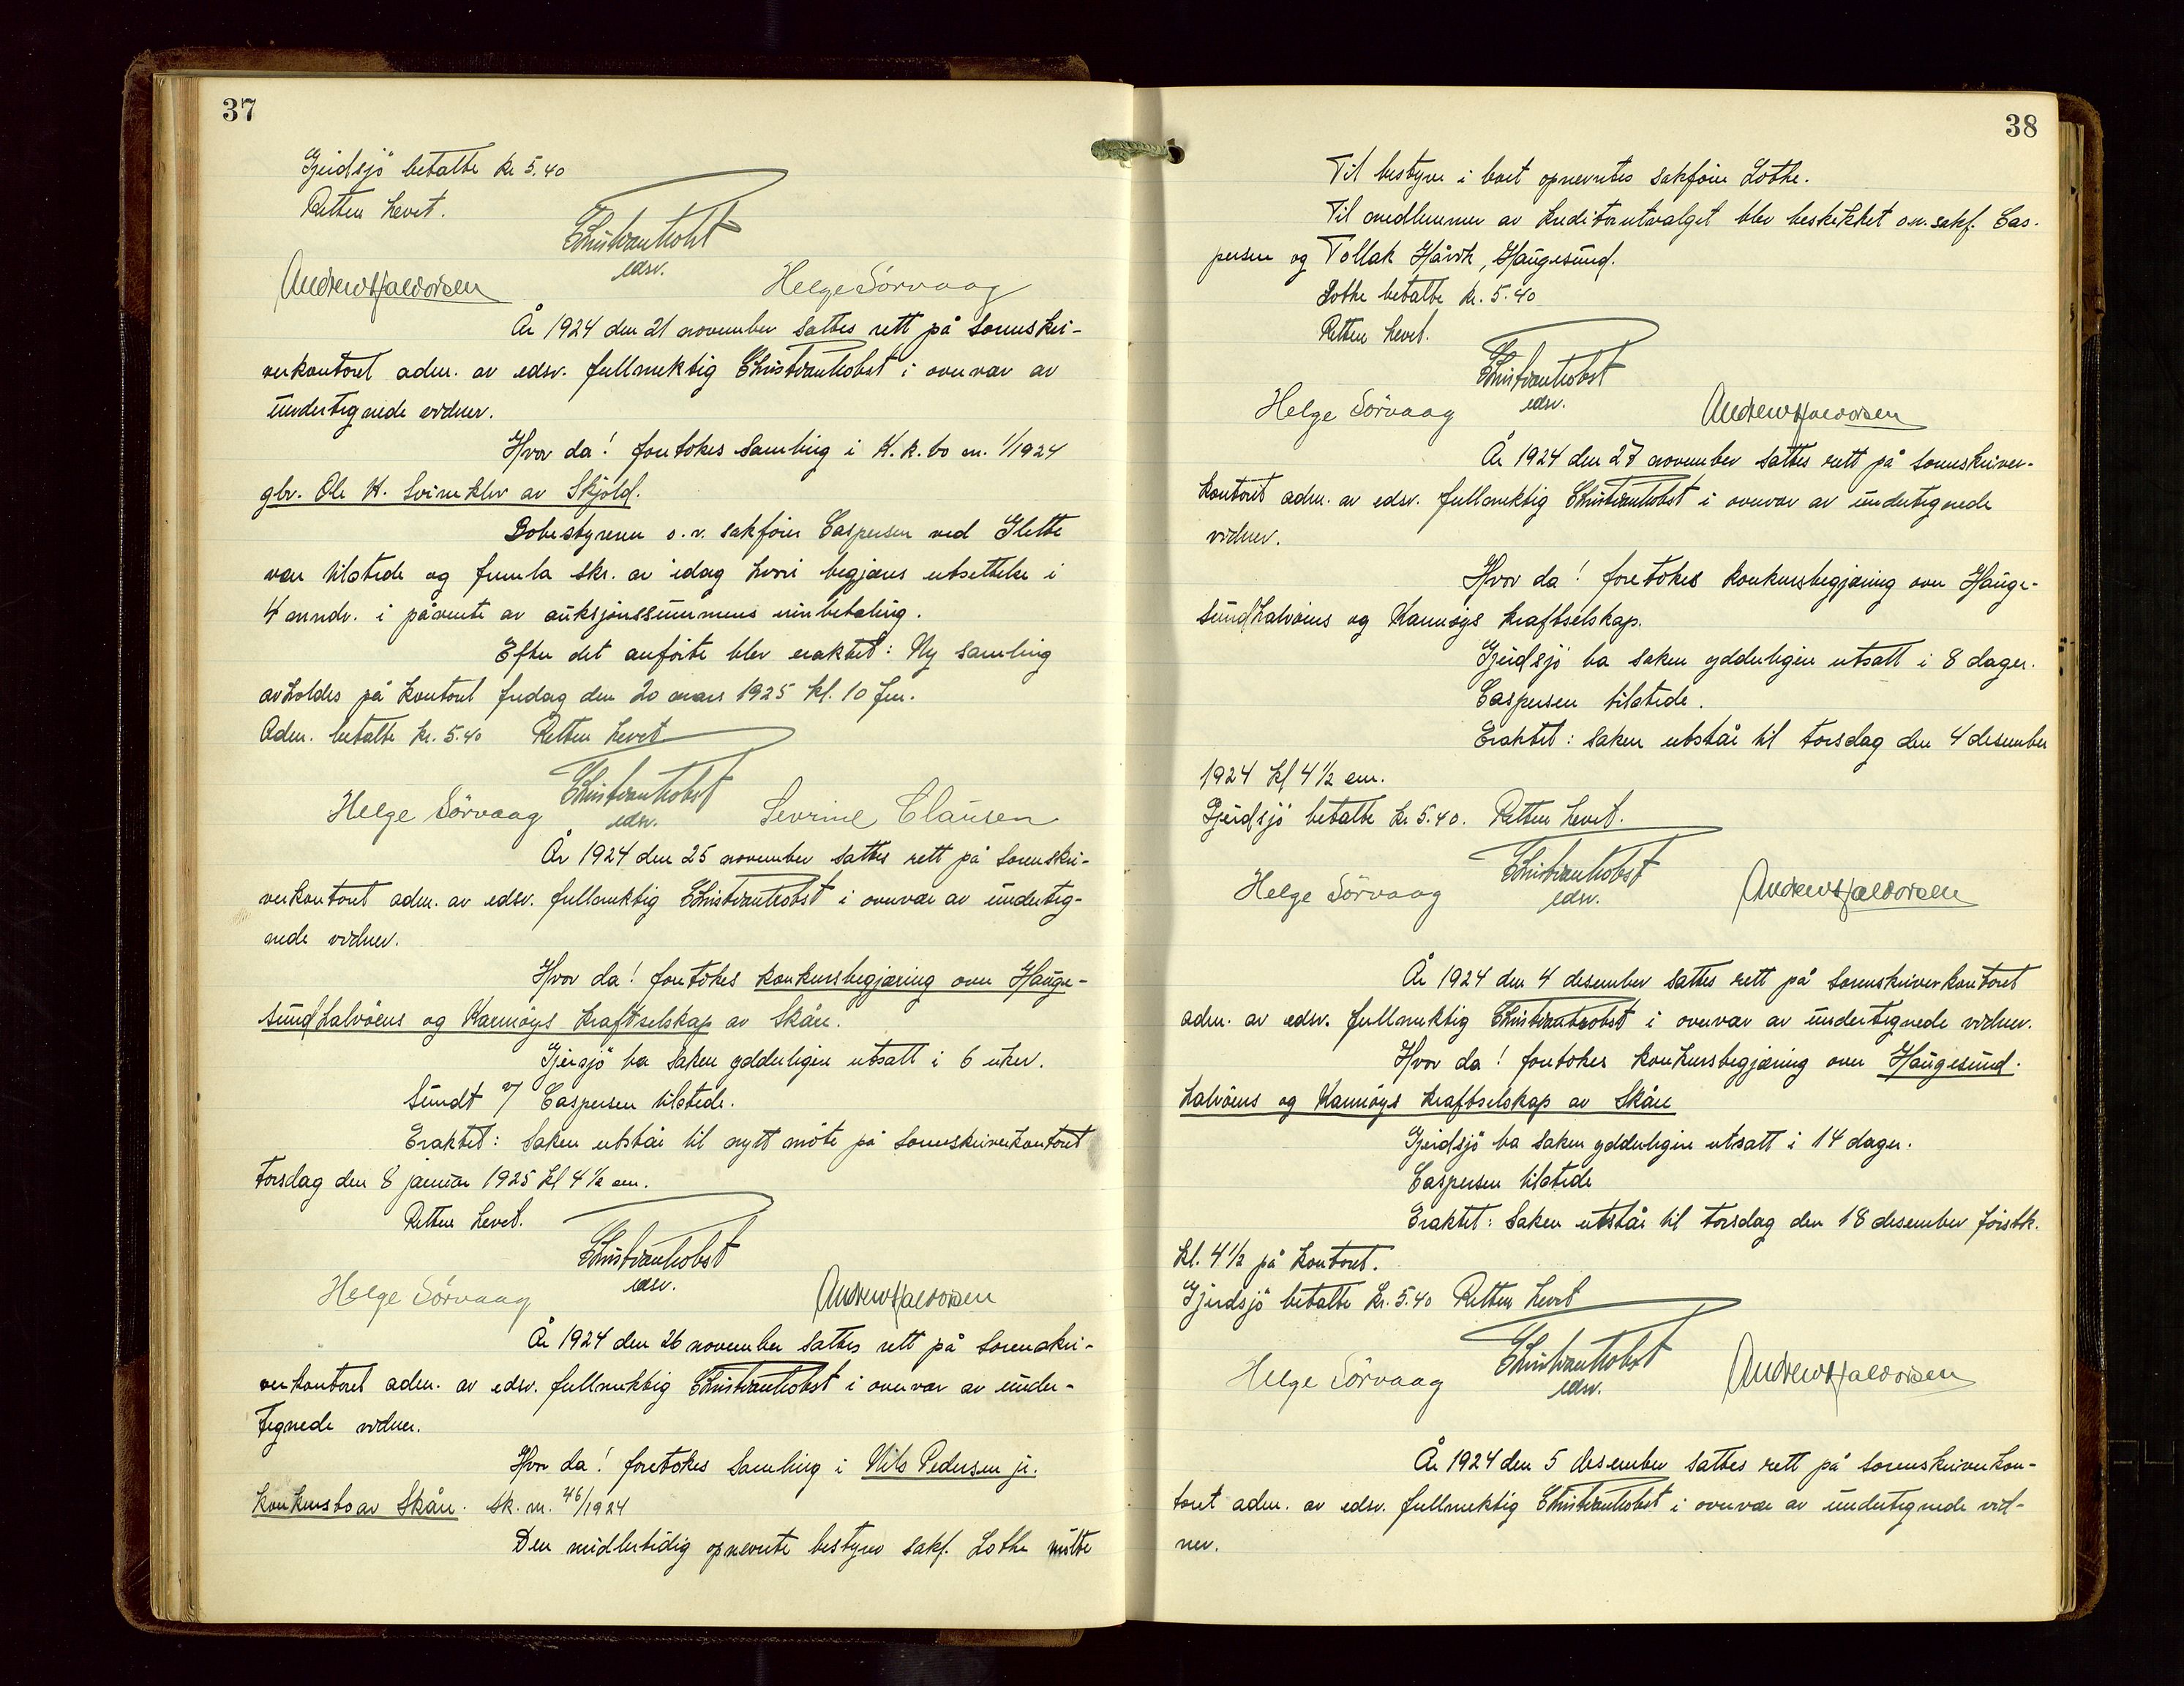 37
Gjeidsjö betalte kr 5.40
Retten hevet.
Christian Kobst
edsv.
Andrew Haldorsen Helge Sörvaag
År 1924 den 21 november sattes rett på sorenskri-
verkontoret adm. av edsv. fullmektig Christian Kobst i overvær av
undertegnede vidner.
Hvor da! foretokes samling i K.k.bo nr. 1/1924
gbr. Ole K. Svineklev av Skjold.
Bobestyreren o.r. sakfører Caspersen ved Glette
var tilstede og fremla skr. av idag hvori begjæres utsettelse i
4 mndr. i påvente av auksjonssummens innbetaling.
Efter det anförte blev eraktet: Ny samling
avholdes på kontoret fredag den 20 mars 1925 kl. 10 fm.
Adm. betalte kr. 5.40 Retten hevet
Christian Kobst
Helge Sörvaag edsv. Sevrine Clausen
År 1924 den 25 november sattes rett på sorenskri-
verkontoret adm. av edsv. fullmektig Christian Kobst i overvær av underteg-
nede vidner.
Hvor da! foretokes konkursbegjæring over Hauge-
sundhalvöens og Karmöys kraftselskap av Skåre.
Gjersjö ba saken ydderligere utsatt i 6 uker.
Sundt v/ Caspersen tilstede.
Eraktet: Saken utstår til nytt möte på sorenskriverkontoret
torsdag den 8 januar 1925 kl 4 1/2 em.
Retten hevet.
Christian Kobst
edsv.
Helge Sörvaag Andrew Haldorsen
År 1924 den 26 november sattes rett på sorenskri-
verkontoret adm. av edsv. fullmektig Christian Kobst i overvær av under-
tegnede vidner.
Hvor da! foretokes samling i Nils Pedersen jr.
konkursbo av Skåre. Sk. nr. 46/1924
Den midlertidig opnevnte bestyrer sakf. Lothe mötte
38
Til bestyrer i boet opnevntes sakförer Lothe.
Til medlemmer av kreditorutvalget blev beskikket o.r. sakf. Cas-
persen og Tollak Håvik, Haugesund.
Lothe betalte kr. 5.40
Retten hevet.
Christian Kobst
edsv.
Helge Sörvaag Andrew Haldorsen
År 1924 den 27 november sattes rett på sorenskriver-
kontoret adm. av edsv. fullmektig Christian Kobst i overvær av undertegnede
vidner.
Hvor da! foretokes konkursbegjæring over Hauge-
sundhalvöens og Karmöys kraftselskap.
Gjeidsjö ba saken ydderligere utsatt i 8 dager.
Caspersen tilstede.
Eraktet: saken utstår til torsdag den 4 desember
1924 kl 4 1/2 em.
Gjeidsjö betalte kr 5.40. Retten hevet.
Christian Kobst
edsv.
Helge Sörvaag Andrew Haldorsen
År 1924 den 4 desember sattes rett på sorenskriverkontoret
adm. av edsv. fullmektig Christian Kobst i overvær av undertegnede vidner.
Hvor da! foretokes konkursbegjæring over Haugesund-
halvöens og Karmöys kraftselskap av Skåre
Gjeidsjö ba saken ydderligere utsatt i 14 dager.
Caspersen tilstede
Eraktet: Saken utstår til torsdag den 18 desember förstk.
kl. 4 1/2 på kontoret.
Gjeidsjö betalte kr. 5.40 Retten hevet
Christian Kobst
edsv.
Helge Sörvaag Andrew Haldorsen
År 1924 den 5 desember sattes rett på sorenskriverkon-
toret adm. av edsv. fullmektig Christian Kobst i overvær av undertegnede vid-
ner.